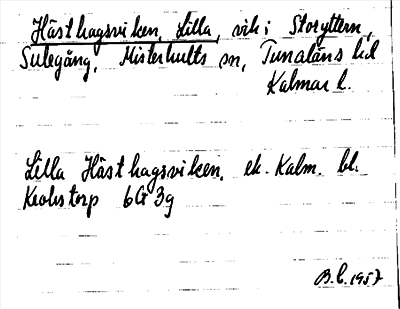 Hästhagsviken, Lilla, vik i Storyttern,
Sulegång, Misterhults sn, Tunaläns hd
Kalmar l.
Lilla Hästhagsviken, ek. Kalm. bl.
6G 3g
B.C. 1957